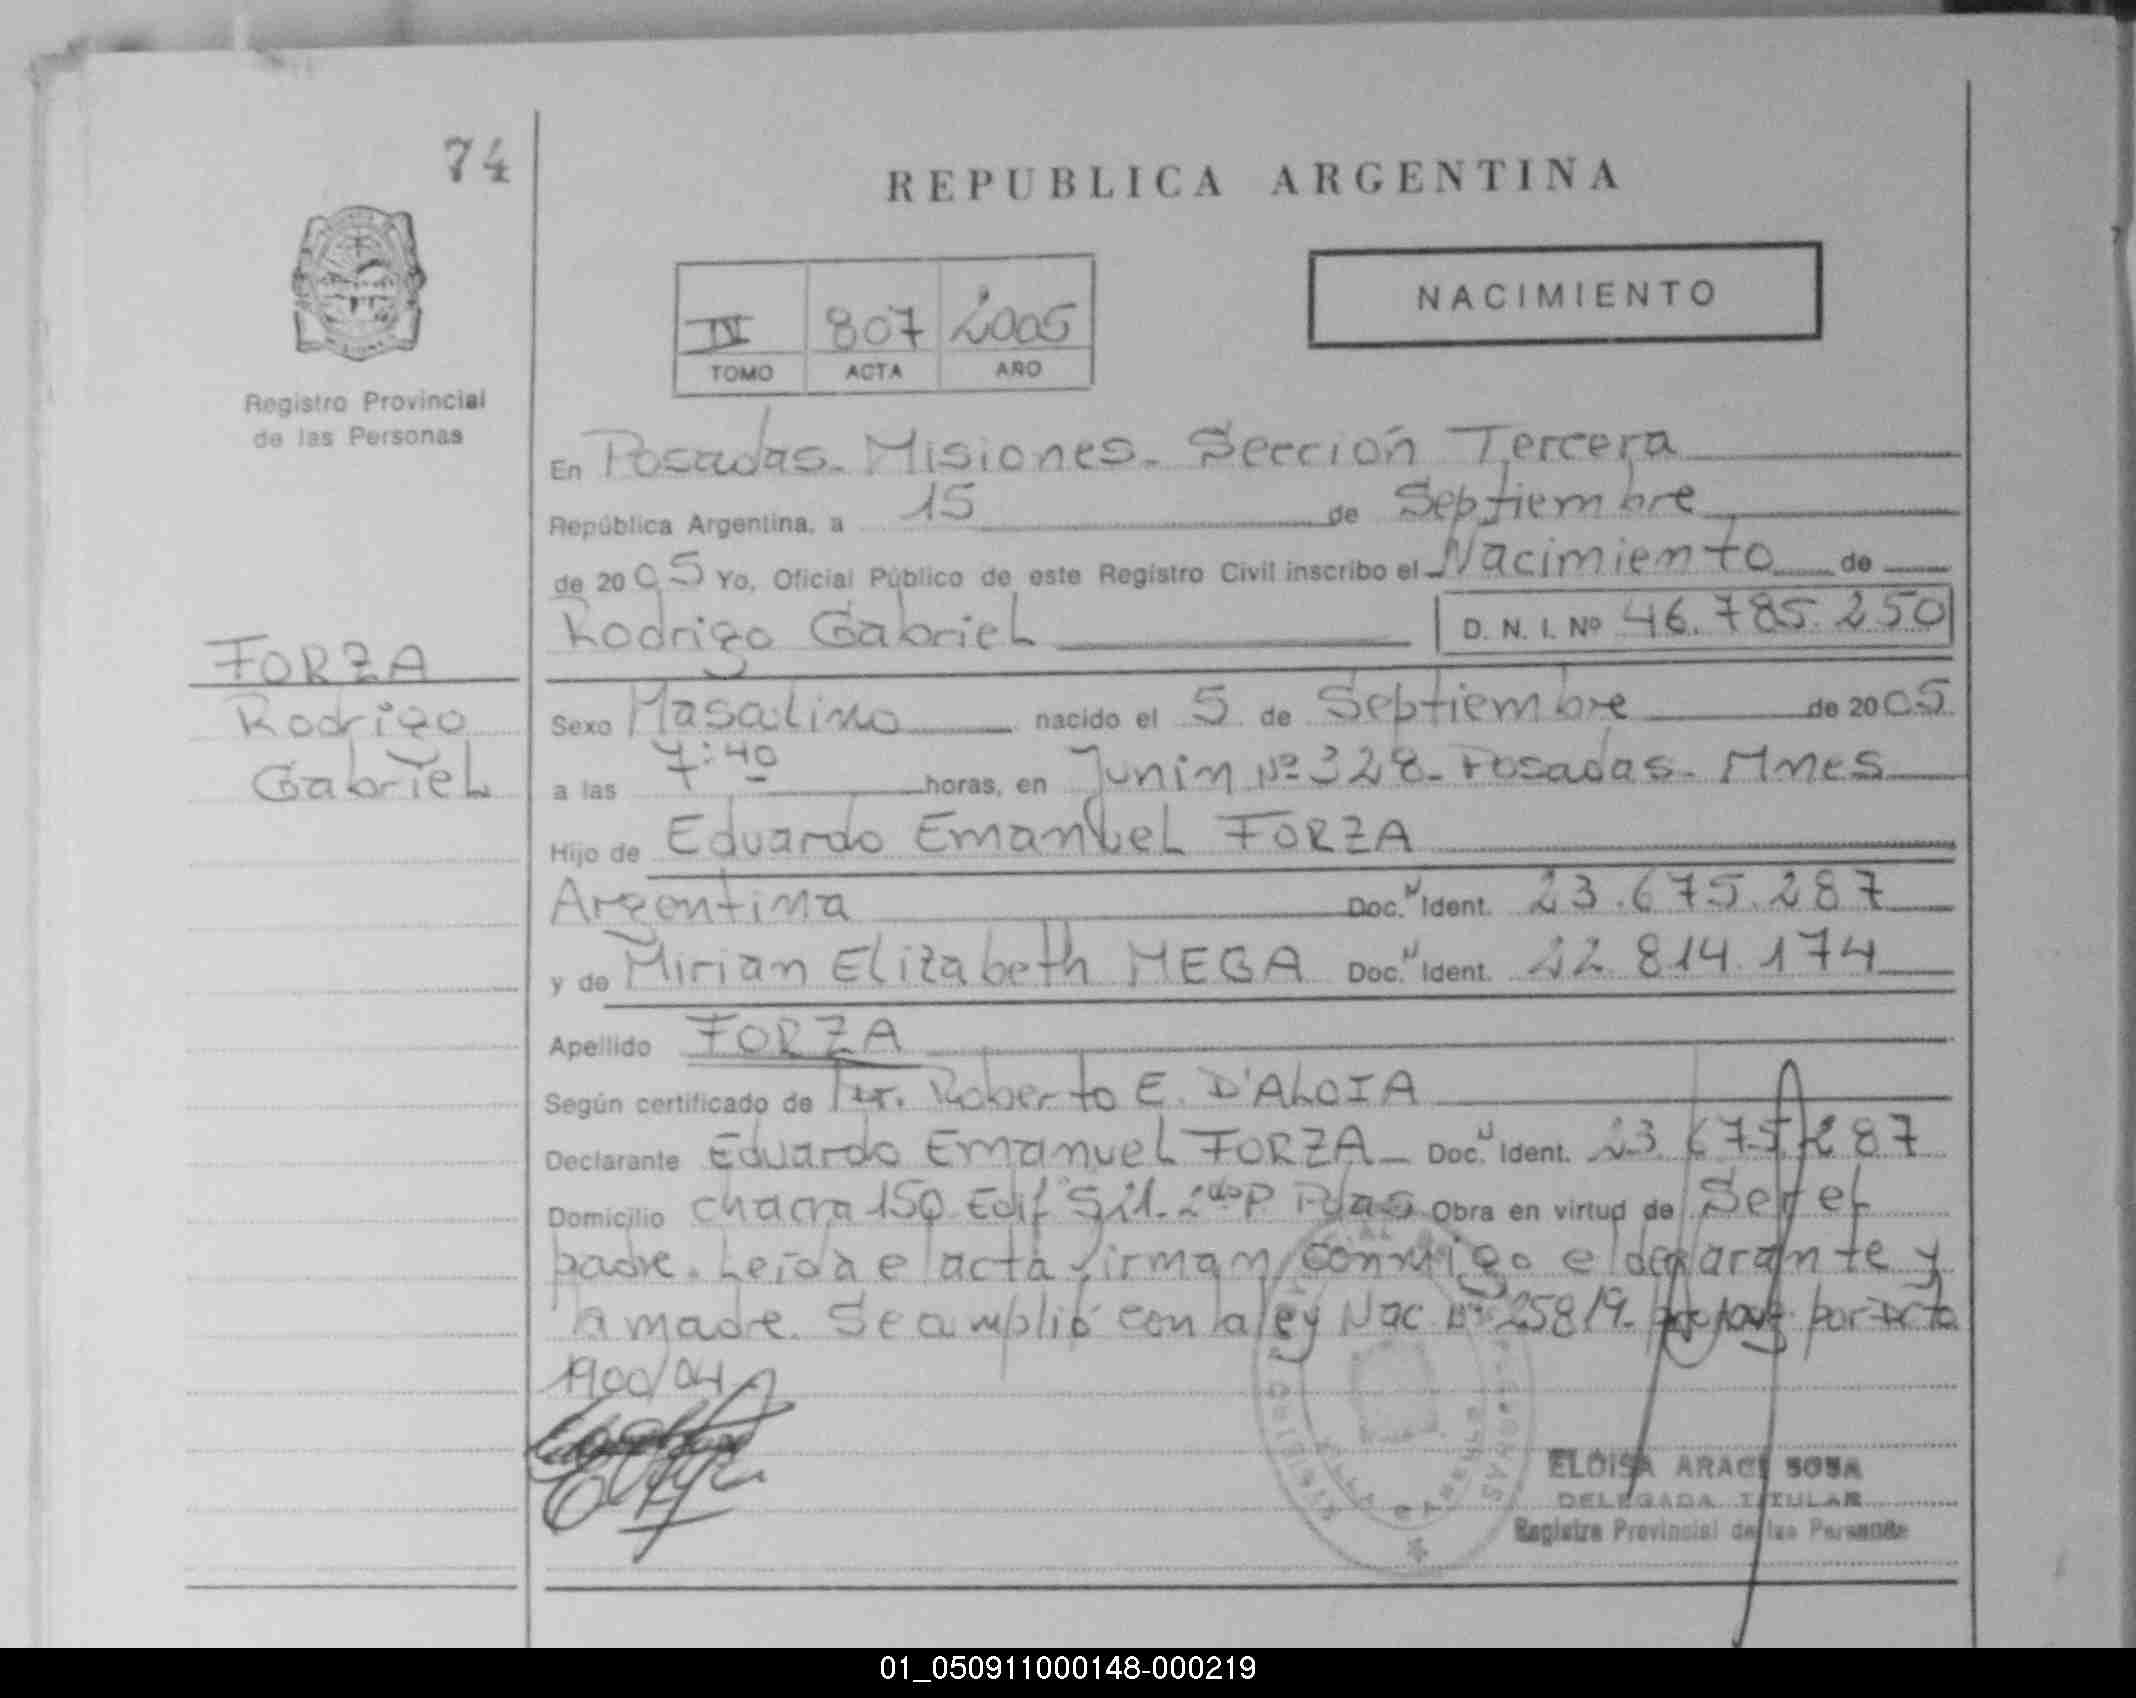 74
REPUBLICA ARGENTINA
NACIMIENTO
IV 807 2005
TOMO ACTA AÑO
Registro Provincial
de las Personas
En Posadas - Misiones - Sección Tercera
República Argentina, a 15 de Septiembre
de 2005 Yo, Oficial Público de este Registro Civil inscribo el Nacimiento de
Rodrigo Gabriel D. N. I. Nº 46.785.250
FORZA
Rodrigo
Gabriel
Sexo Masculino nacido el 5 de Septiembre de 2005
a las 7:40 horas, en Junin Nº 328 - Posadas - Mnes
Hijo de Eduardo Emanuel FORZA
Argentina Doc. Ident. 23.675.287
y de Mirian Elizabeth MEGA Doc. Ident. 22.814.174
Apellido FORZA
Según certificado de Roberto E. D'ALOIA
Declarante Eduardo Emanuel FORZA - Doc. Ident. 23.675.287
Domicilio Chacra 150 Edif Pdas Obra en virtud de Ser el
padre. Leída el acta firman conmigo el declarante y
la madre. Se amplió con la ley Nac Nº 25819 - por Dcto
1900/04
ELOISA ARACI SOSA
DELEGADA TITULAR
Registro Provincial de las Personas
01_050911000148-000219